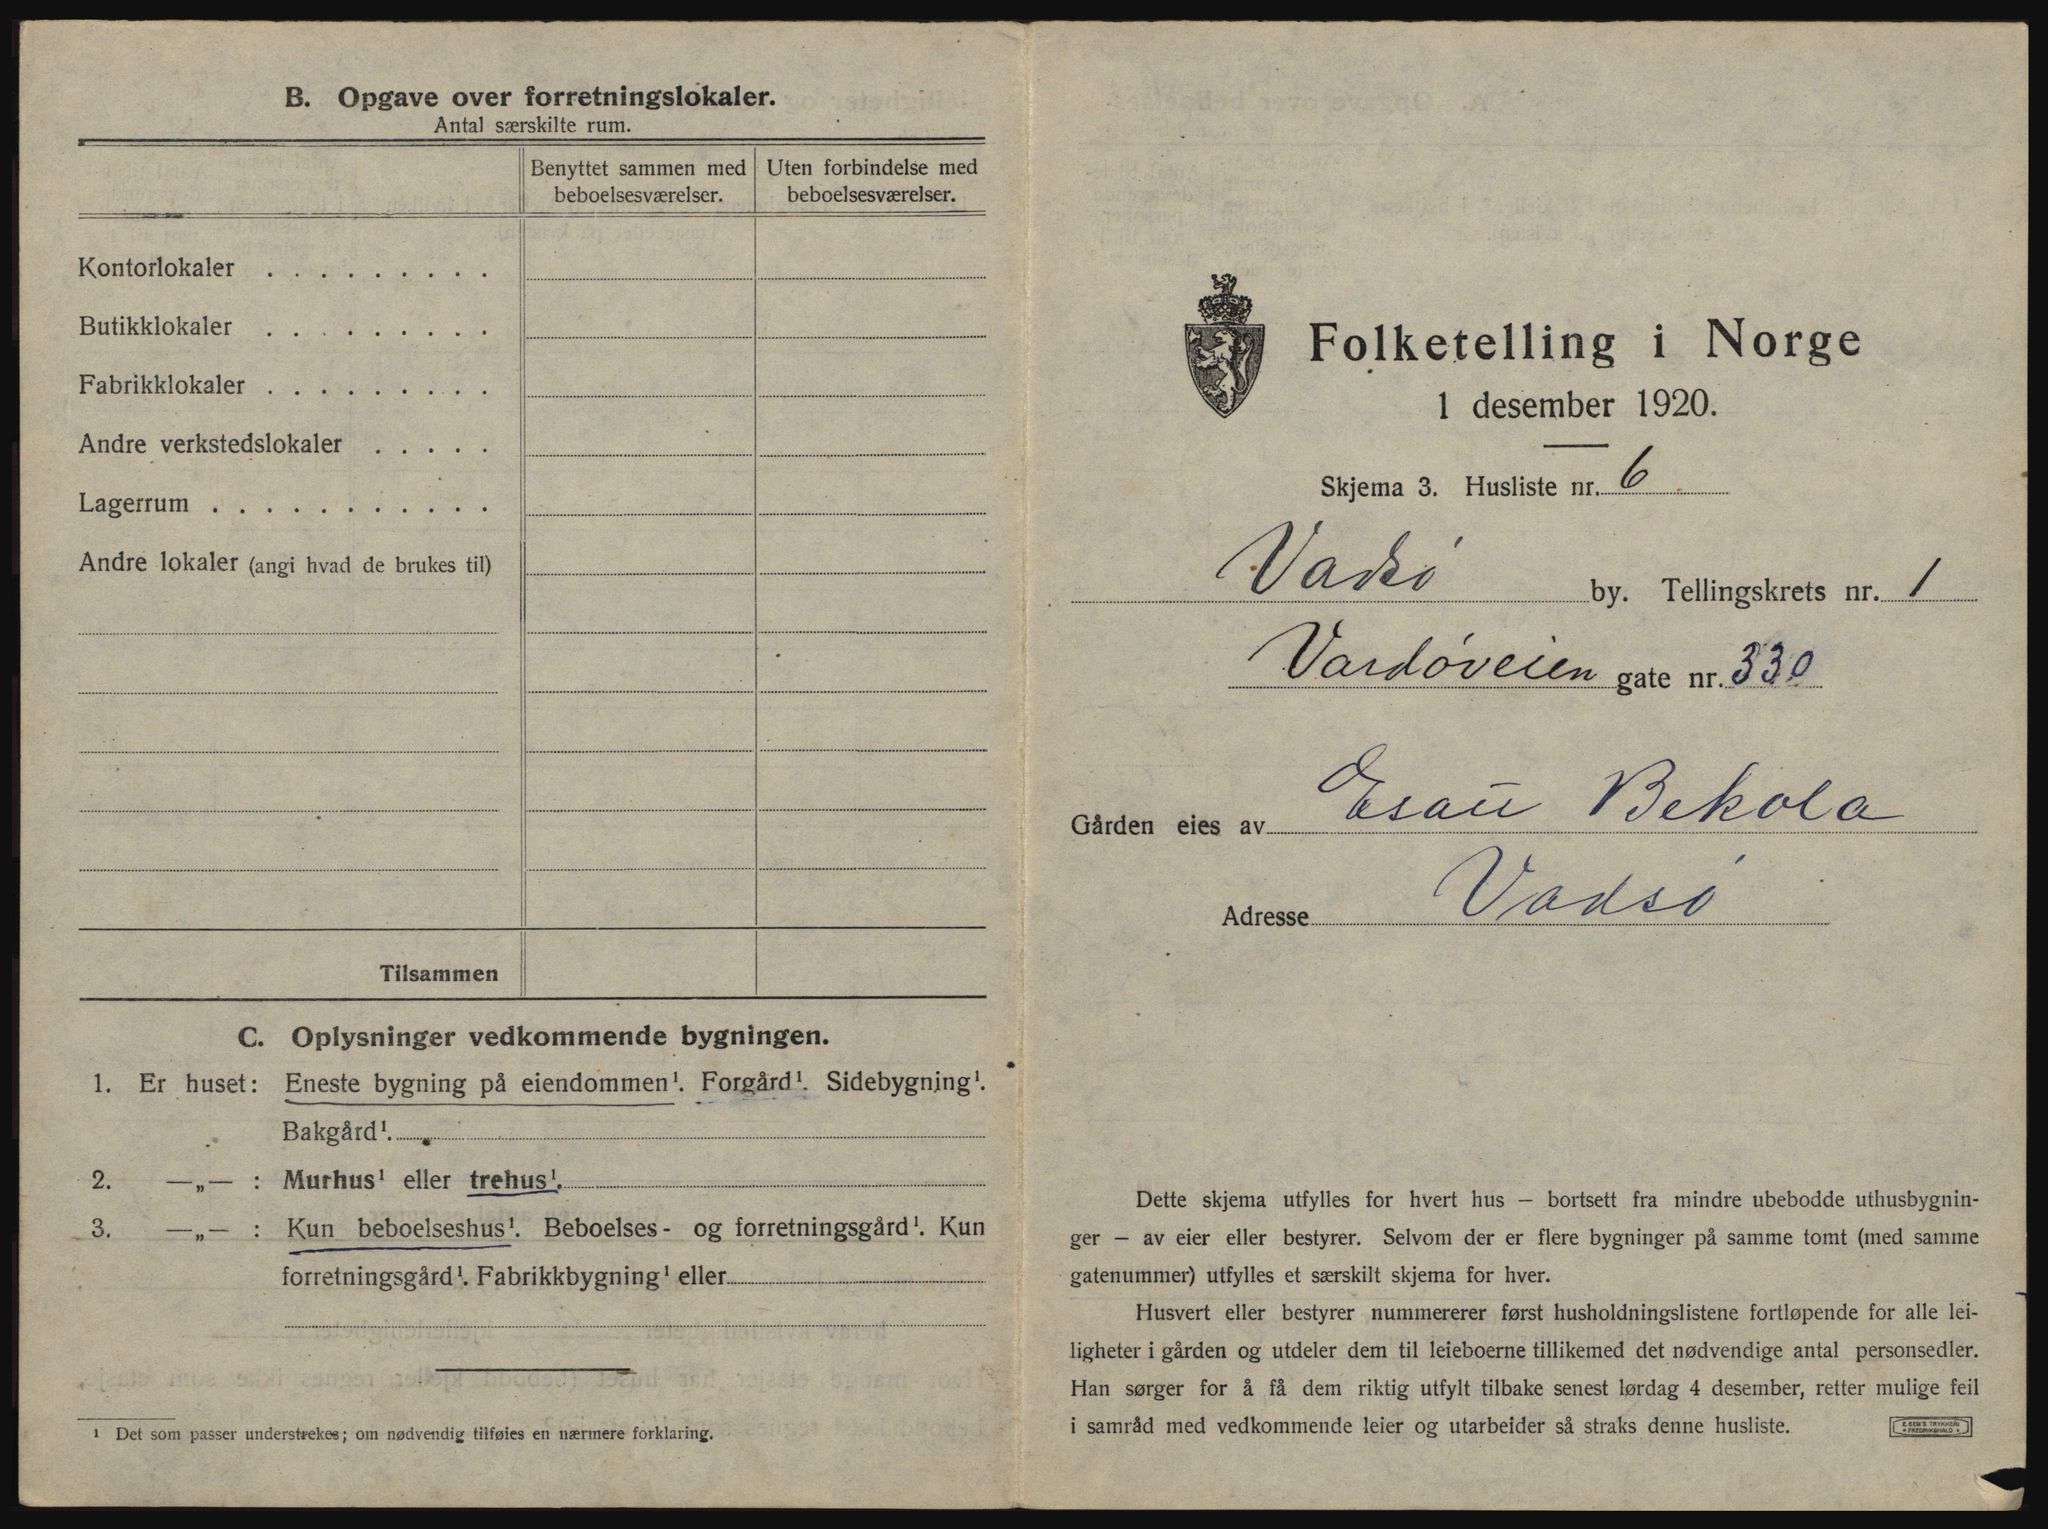 B. Opgave over forretningslokaler.
Antal særskilte rum.
Benyttet sammen med beboelsesværelser.
Uten forbindelse med beboelsesværelser.
Kontorlokaler . . . . . . . . .
Butikklokaler . . . . . . . . .
Fabrikklokaler . . . . . . . . .
Andre verkstedslokaler . . . . .
Lagerrum . . . . . . . . . . .
Andre lokaler (angi hvad de brukes til)
Tilsammen
C. Oplysninger vedkommende bygningen.
1. Er huset: Eneste bygning på eiendommen¹. Forgård¹. Sidebygning¹.
Bakgård¹.
2. —„— : Murhus¹ eller trehus¹.
3. —„— : Kun beboelseshus¹. Beboelses- og forretningsgård¹. Kun
forretningsgård¹. Fabrikkbygning¹ eller
¹ Det som passer understrekes; om nødvendig tilføies en nærmere forklaring.
Folketelling i Norge
1 desember 1920.
Skjema 3. Husliste nr. 6
Vadsö by. Tellingskrets nr. 1
Vardöveien gate nr. 330
Gården eies av Esau Bekola
Adresse Vadsö
Dette skjema utfylles for hvert hus – bortsett fra mindre ubebodde uthusbygnin-
ger – av eier eller bestyrer. Selvom der er flere bygninger på samme tomt (med samme
gatenummer) utfylles et særskilt skjema for hver.
Husvert eller bestyrer nummererer først husholdningslistene fortløpende for alle lei-
ligheter i gården og utdeler dem til leieboerne tillikemed det nødvendige antal personsedler.
Han sørger for å få dem riktig utfylt tilbake senest lørdag 4 desember, retter mulige feil
i samråd med vedkommende leier og utarbeider så straks denne husliste.
E. SEM'S TRYKKERI
FREDRIKSHALD